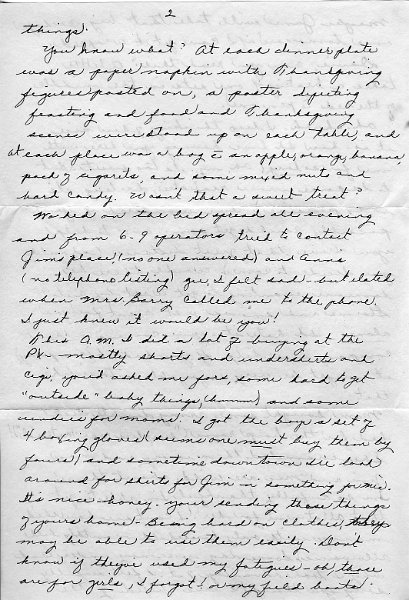 2
things!
You know what? At each dinner plate
was a paper napkin with Thanksgiving
figures pasted on, a poster depicting
feasting and food and Thanksgiving
scenes were stood up on each table, and
at each place was a bag c̄ an apple, orange, banana,
pack of sigarets, and some mixed nuts and
hard candy. Wasn't that a sweet treat?
Worked on the bed spread all evening
and from 6-9 operators tried to contact
Jim's place, (no one answered) and Anns
(no telephone listing) gee, I felt sad - but elated
when Mrs. Barry called me to the phone.
I just knew it would be you!
This A.M. I did a lot of buying at the
PX - mostly shorts and undershirts and
cigs, you'd asked me for, some hard to get
"outside" baby things, (hmmm) and some
undies for mama. I got the boys a set of
4 boxing gloves (seems one must buy them by
fours) and sometime downtown I'll look
around for skirts for Jim or something for me.
It's nice - honey - your sending those things
of yours home - Being hard on clothes, they
may be able to use them easily. Don't
know if they've used my fatigues - oh, those
are for girls, I forgot! or my field boots!